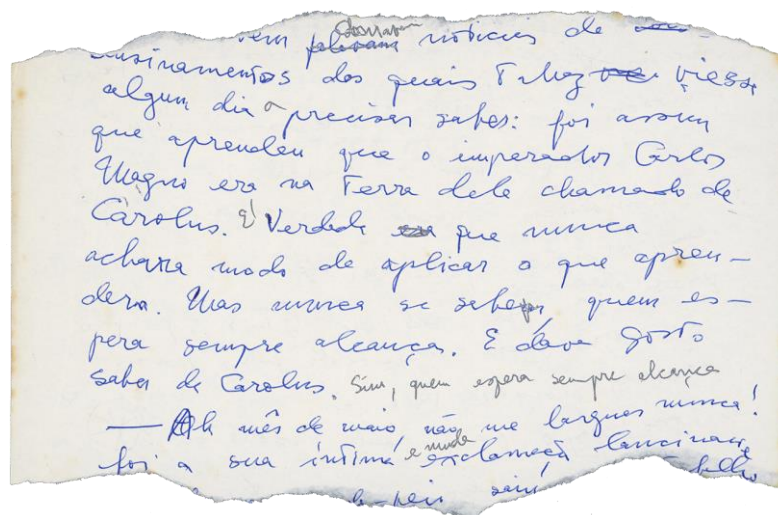 vem notícias de
ensinamentos dos quais talvez viesse
algum dia a precisar saber: foi assim
que aprendeu que o imperador Carlos
Magno era na Terra dele chamado de
Carolus. É Verdade que nunca
achara modo de aplicar o que apren-
dera. Mas nunca se sabe, quem es-
pera sempre alcança. E dava gosto
saber de Carolus. Sim, quem espera sempre alcança
— Ah mês de maio, não me largues nunca!
foi a sua íntima e muda exclamação lancinante